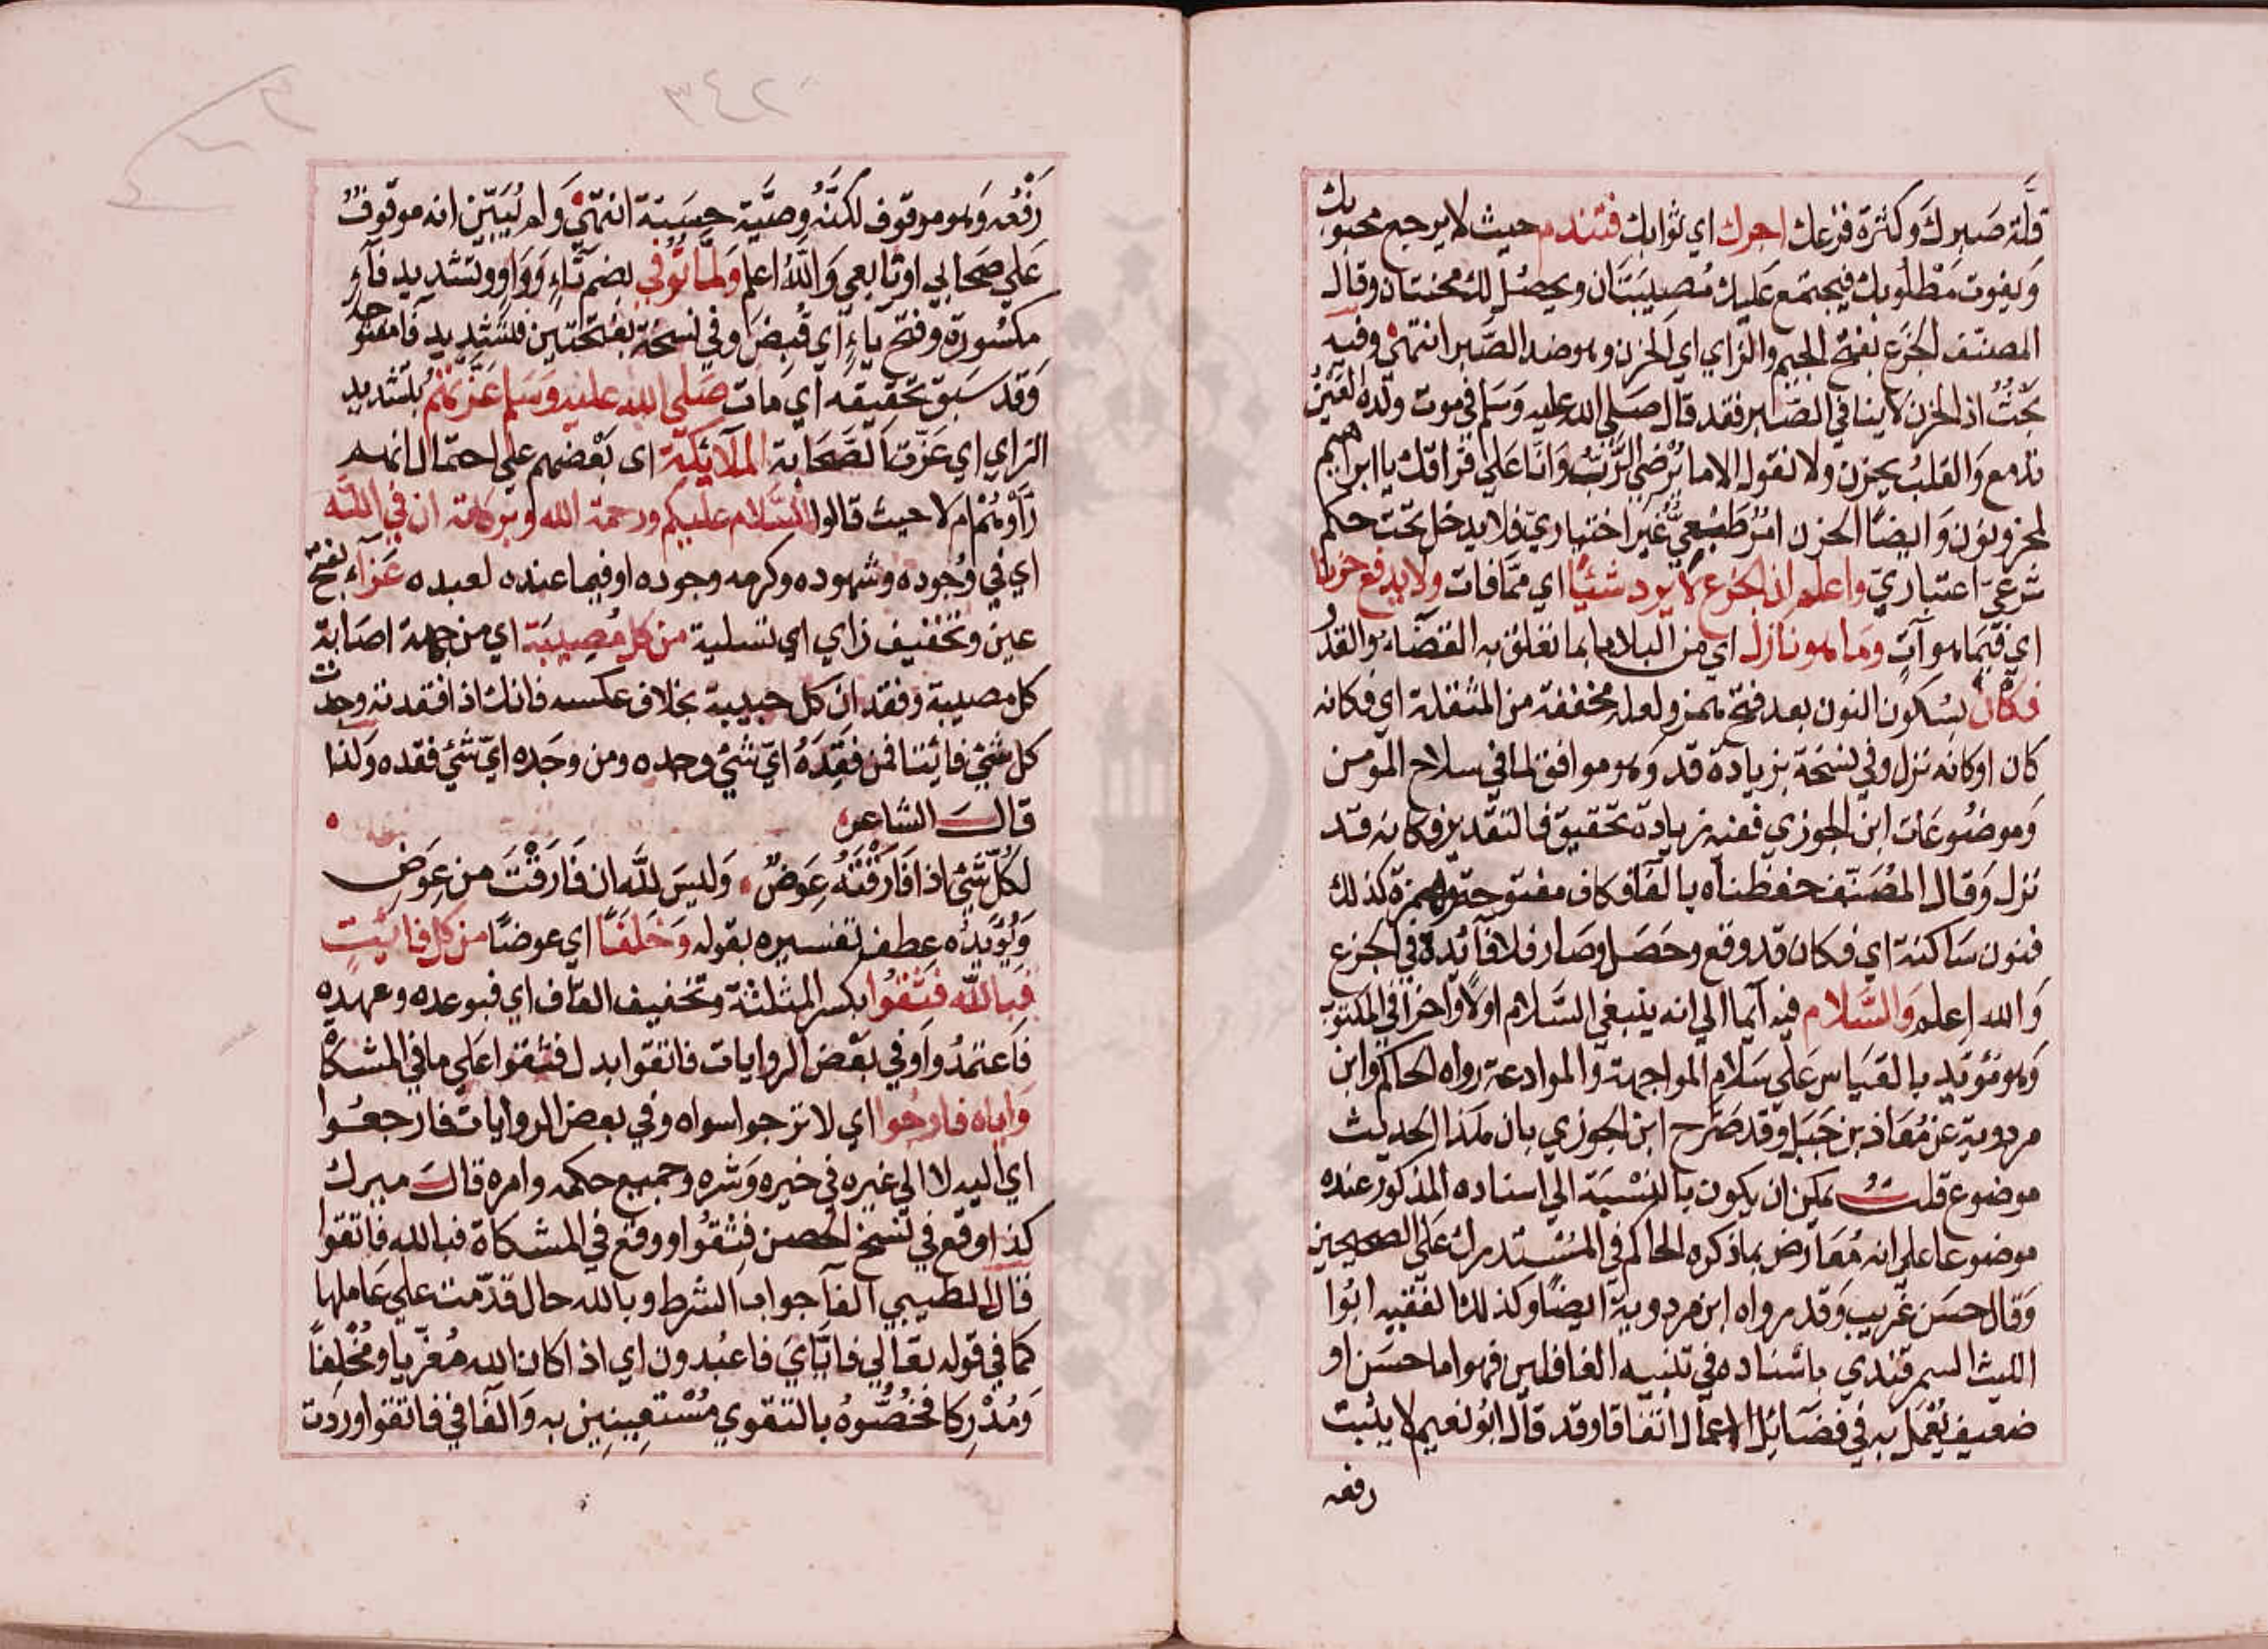 قلّة صبرك وكثرة فزعك اجرك اي ثوابك فتندم حيث لا يرجع محبوبك
ويفوت مطلوبك فيجتمع عليك مُصيبتان ويحصُل لك محنتان وقال
المصنّف الجزع بفتح الجيم والزاي اي الحزن وهو ضد الصّبر انتهى وفيه
بحثٌ اذ الحزن لا ينافي الصّبر فقد قال صلى الله عليه وسلم في موت ولده العين
تدمع والقلب يحزن ولا نقول الا ما يُرضي الرّبّ وانا على فراقك يا ابراهيم
لمحزونون وايضًا الحزن امرٌ طبيعيٌّ غير اختياريّ فلا يدخل تحت حكم
شرعيّ اعتباريّ واعلم ان الجزع لا يرد شيئًا اي ممّا فات ولا يدفع حزنا
اي فيما هو آتٍ وما هو نازل اي من البلاء بما تعلق به القضاء والقدر
فكأن بسكون النون بعد فتح همز ولعله مخففة من المثقلة اي فكانه
كان اوكانه نزل وفي نسخة بزيادة قد وهو موافق لما في سلاح المؤمن
وموضوعات ابن الجوزي ففيه زيادة تحقيق فالتقدير فكانه قد
نزل وقال المُصنّف حفظناه بالفآ فكاف مفتوحة وهمزة كذلك
فنون ساكنة اي فكان قد وقع وحصل وصار فلا فآئدة في الجزع
والله اعلم والسّلام فيه آيماالي انه ينبغي السّلام اولًا واخرًا في المكتوب
وهو مؤيّد بالقياس على سلام المواجهة والموادعة رواه الحاكم وابن
مردوية عن مُعاذ بن جَبَل وقد صرّح ابن الجوزي بان هذا الحديث
موضوع قلتُ يمكن ان يكون بالنسبة الي اسناده المذكور عنده
موضوعا على انه مُعارض بماذكره الحاكم في المُستدرك على الصحيحين
وقال حسن غريب وقد رواه ابن مردوية ايضًا وكذلك الفقيه ابُوا
الليث السمرقندي باسناده في تنبيه الغافلين فهو اما حسَن او
ضعيف يُعْمل به في فضآئل الاعمال اتفاقا وقد قال ابُو نعيم لا يثبت
رفعه
٣٤٢
رَفْعُه وهو موقوف لكنّه وصيّة حسنة انتهى ولم يُبيّن انه موقوف
على صحابي او تابعي والله اعلم ولمّا تُوُفّي بضم تاءٍ وواوٍ وتشديد فآءٍ
مكسورة وفتح ياءٍ اي قُبِضَ وفي نسخة بفتحتين فتشديد فآ مفتوحة
وقد سبق تحقيقه اي مات صلى الله عليه وسلم عزّتهم بتشديد
الزاي اي عزّت الصّحابة الملآئكة اى بَعْضهم على احتمال انهم
رَأَوْهُمْ ام لا حيث قالوا السّلام عليكم ورحمة الله وبركاته ان في الله
اي في وُجوده وشهوده وكرمه وجوده او فيما عنده لعبده عَزآء بفتح
عين وتخفيف زاي اي تسلية من كل مُصيبَة اي من جهة اصابة
كل مصيبة وفقدان كل حبيبة بخلاف عكسه فانك اذا فقدته وجدت
كل شئ فائتا فمن فَقِدَهُ ايّ شئ وجده ومن وجَده ايّ شئ فقده ولذا
قال الشاعر
لكُلّ شئ اذا فَارَقْتَهُ عِوَضٌ وليسَ للّه ان فَارَقْتَ من عِوَضٍ
ويُؤيّدُه عطف تفسيره بقوله وخَلَفًا اي عوضًا من كل فائتٍ
فبالله فثقُوا بكسر المثلثة وتخفيف القاف اي فبوعده وعهده
فاعتمدُوا وفي بعض الروايات فاتقوا بدل فثقوا على ما في المشكاة
واياه فارجُوا اي لا ترجوا سواه وفي بعض الروايات فارجعُوا
اي اليه لا الي غيره في خيره وشره وجميع حكمه وامره قال ميرك
كذا وقع في نسخ الحصن فثِقُوا ووقع في المشكاة فبالله فاتقوا
قال الطيبي الفآ جواب الشرط وبالله حال قدّمت على عاملها
كما في قوله تعالي فايّاي فاعبُدون اي اذا كان الله مُعزّيا ومُخْلِفًا
ومُدْرِكا فخُصُّوهُ بالتقوي مُسْتعِينين به والفآ في فاتقوا وردت